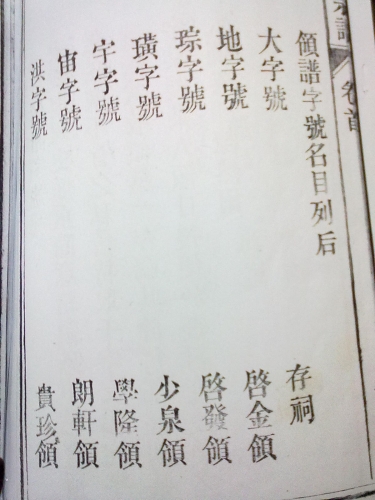 卷首
領譜字號名目列后
大字號 存祠
地字號 啓金領
琮字號 啓發領
璜字號 少泉領
宇字號 學隆領
宙字號 朗軒領
洪字號 貴珍領